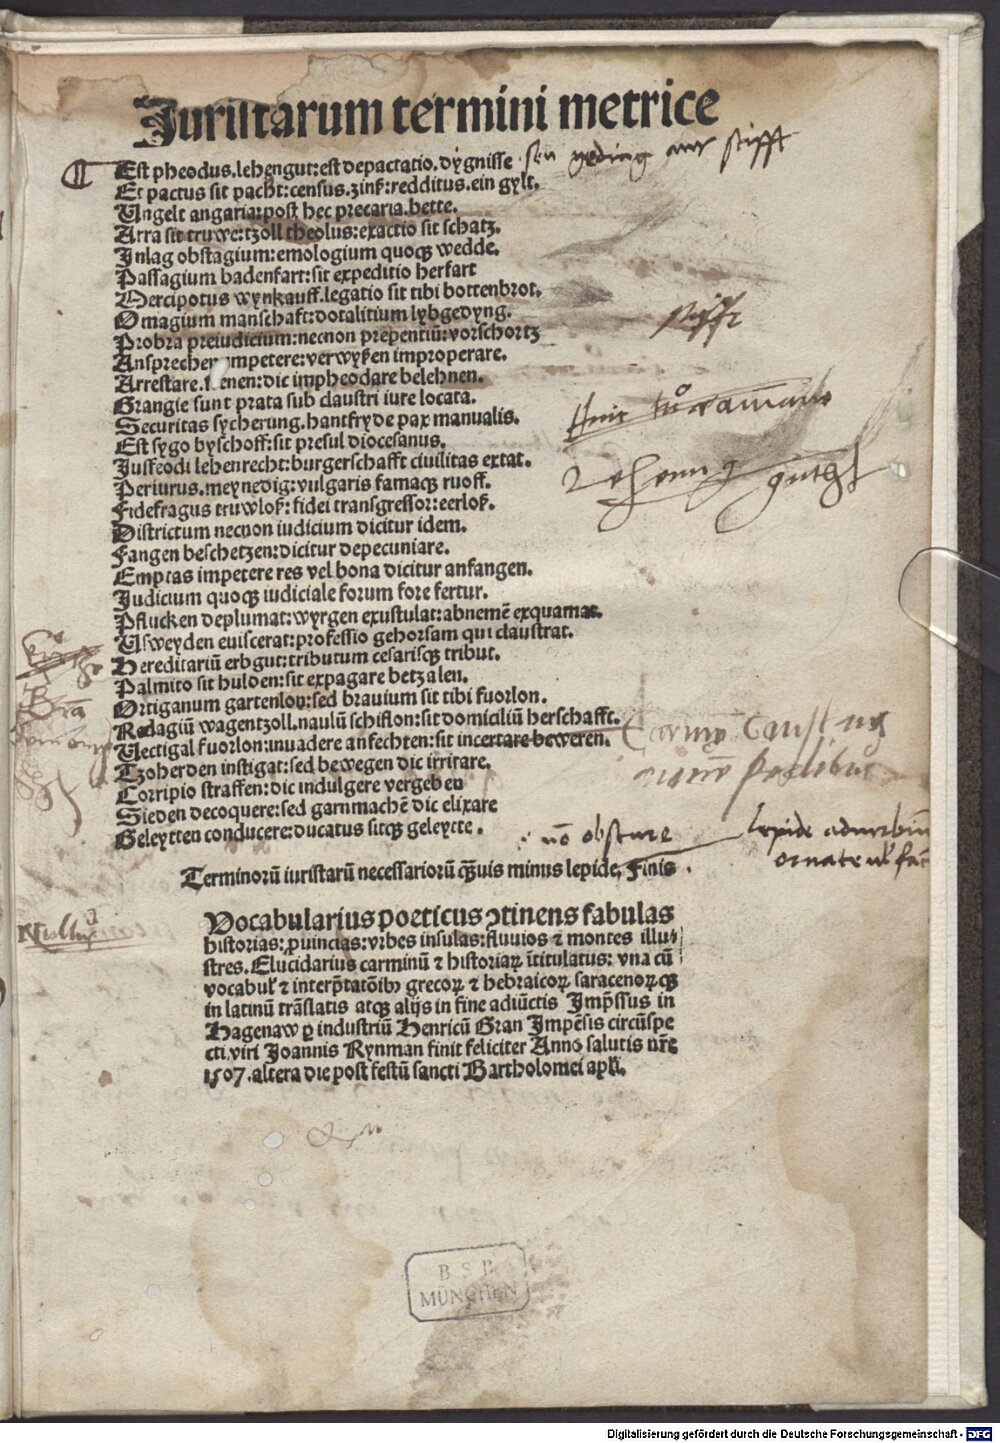 Juristarum termini metrice
¶ Est pheodus.lehengut:est depactatio.dygnisse
Et pactus sit pacht:census.zinß:redditus.ein gylt.
Ungelt angaria:post hec precaria.bette.
Arra sit truwe:tzoll theolus:exactio sit schatz.
Inlag obstagium:emologium quoqȝ wedde.
Passagium badenfart:sit expeditio herfart
Mercipotus wynkauff.legatio sit tibi bottenbrot.
Omagium manschaft:dotalitium lybgedyng.
Probra preiudicium:necnon prepentiū:vorschortz
Ansprechen impetere:verwyßen improperare.
Arrestare. enen:dic impheodare belehnen.
Grangie sunt prata sub claustri iure locata.
Securitas sycherung.hantfryde pax manualis.
Est sygo byschoff:sit presul diocesanus.
Jusfeodi lehenrecht:burgerschafft ciuilitas extat.
Periurus.meynedig:vulgaris famaqȝ ruoff.
Fidefragus truwloß:fidei transgressor:eerloß.
Districtum necnon iudicium dicitur idem.
Fangen beschetzen:dicitur depecuniare.
Emptas impetere res vel bona dicitur anfangen.
Judicium quoqȝ iudiciale forum fore fertur.
Pflucken deplumat:wyrgen exustulat:abnemē exquamat.
Usweyden euiscerat:professio gehorsam qui claustrat.
Hereditariū erbgut:tributum cesarisqȝ tribut.
Palmito sit hulden:sit expagare betzalen.
Ortiganum gartenlon:sed brauium sit tibi fuorlon.
Rodagiū wagentzoll.naulū schiflon:sit domiciliū herschafft.
Uectigal fuorlon:inuadere anfechten:sit incertare beweren.
Tzoherden instigat:sed bewegen dic irritare.
Corripio straffen:dic indulgere vergeben
Sieden decoquere:sed garnmachē dic elixare
Geleytten conducere:ducatus sitqȝ geleytte.
nō obscure
lepide aduerbiū
Terminorū iuristarū necessariorū qȝuis minus lepide, Finis.
Vocabularius poeticus ↄtinens fabulas
historias:ꝓuincias:vrbes insulas:fluuios ⁊ montes illu⸗
stres.Elucidarius carminū ⁊ historiaꝝ ītitulatus:vna cū
vocabuꝉ ⁊ interp̄tatōibꝰ grecoꝝ ⁊ hebraicoꝝ saracenoꝝqȝ
in latinū trāslatis atqȝ alijs in fine adiūctis Imp̄ssus in
Hagenaw ꝑ industriū Henricū Gran Impēsis circūspe
cti viri Joannis Rynman finit feliciter Anno salutis nr̄e
1507.altera die post festū sancti Bartholomei apꝉi.
B S B
MÜNCHEN
Digitalisierung gefördert durch die Deutsche Forschungsgemeinschaft - DFG